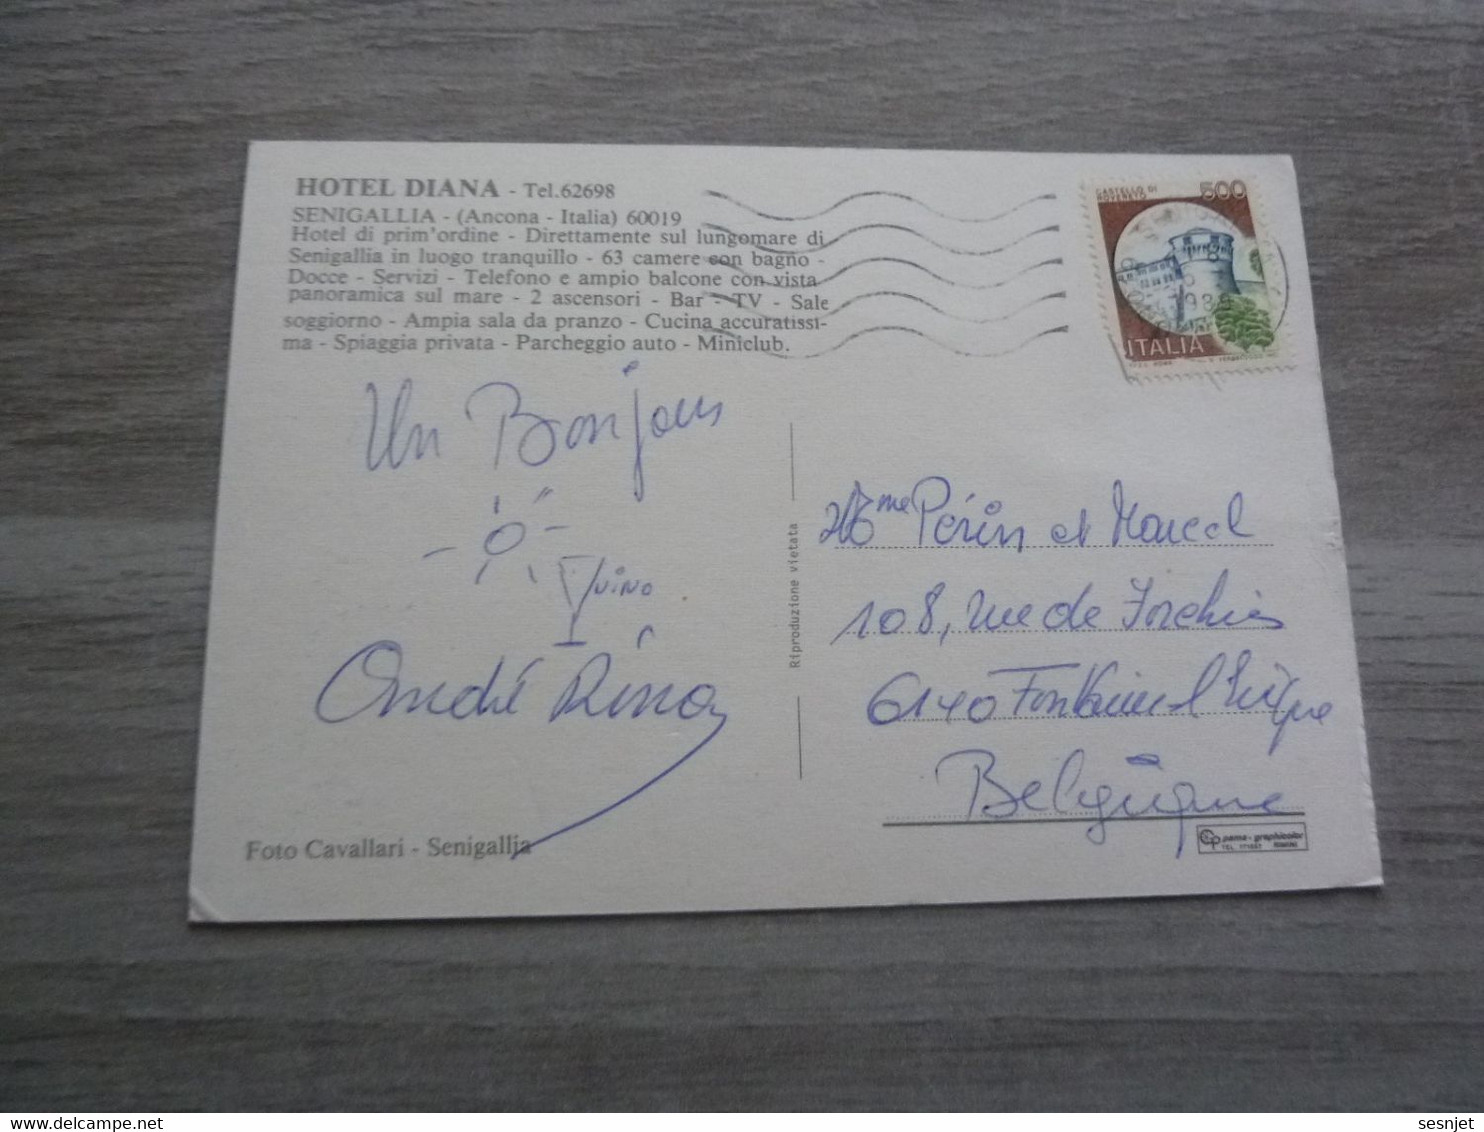 HOTEL DIANA - Tel.62698
SENIGALLIA - (Ancona - Italia) 60019
Hotel di prim'ordine - Direttamente sul lungomare di
Senigallia in luogo tranquillo - 63 camere con bagno -
Docce - Servizi - Telefono e ampio balcone con vista
panoramica sul mare - 2 ascensori - Bar - TV - Sale
soggiorno - Ampia sala da pranzo - Cucina accuratissi-
ma - Spiaggia privata - Parcheggio auto - Miniclub.
CASTELLO DI
ROVERETO
500
ITALIA
Un Bonjour
VINO
André Rina
Foto Cavallari - Senigallia
Riproduzione vietata
Mme Périn et Marcel
108, rue de Forchies
6140 Fontaine l'Evêque
Belgique
pama-graphicolor
sesnjet